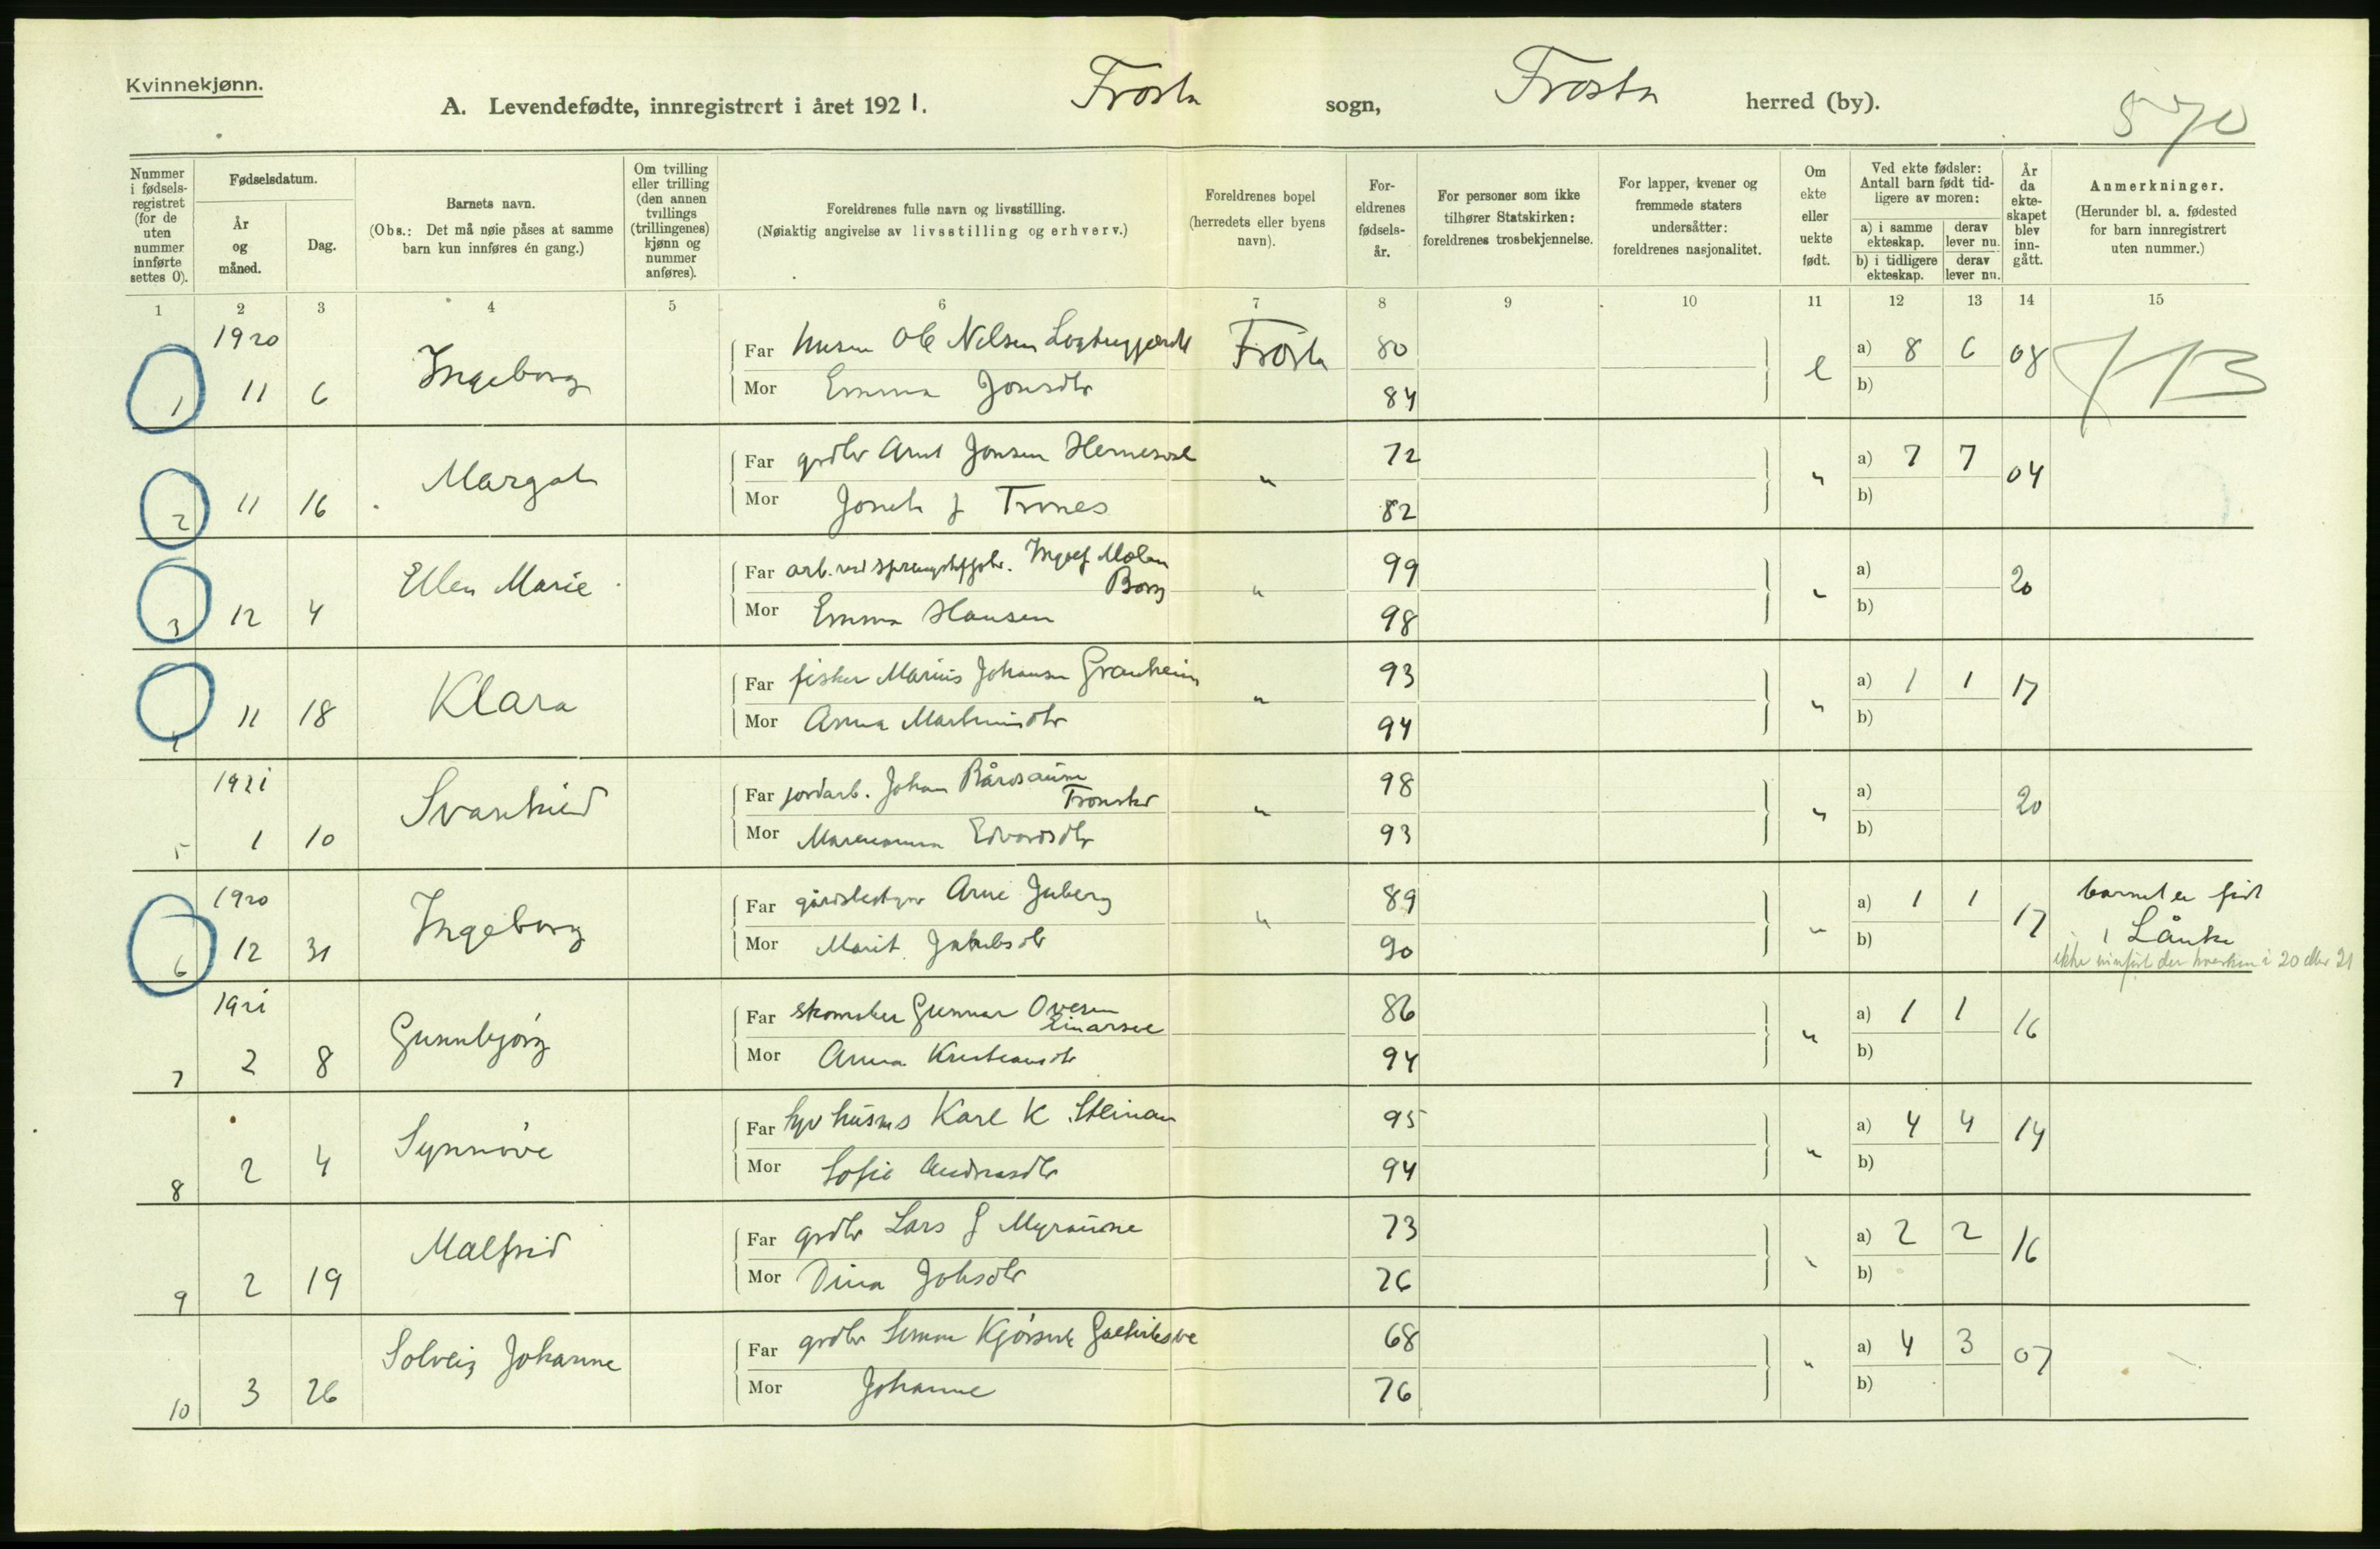 Kvinnekjønn.
A. Levendefødte, innregistrert i året 1921. Frosta sogn, Frosta herred (by).
570
Nummer i fødsels-registret (for de uten nummer innførte settes 0).
Fødselsdatum.
År og måned.
Dag.
Barnets navn.
(Obs.: Det må nøie påses at samme barn kun innføres én gang.)
Om tvilling eller trilling (den annen tvillings (trillingenes) kjønn og nummer anføres).
Foreldrenes fulle navn og livsstilling.
(Nøiaktig angivelse av livsstilling og erhverv.)
Foreldrenes bopel (herredets eller byens navn).
For-eldrenes fødsels-år.
For personer som ikke tilhører Statskirken: foreldrenes trosbekjennelse.
For lapper, kvener og fremmede staters undersåtter: foreldrenes nasjonalitet.
Om ekte eller uekte født.
Ved ekte fødsler: Antall barn født tid-ligere av moren:
a) i samme ekteskap.
derav lever nu.
b) i tidligere ekteskap.
derav lever nu.
År da ekte-skapet blev inn-gått.
Anmerkninger.
(Herunder bl. a. fødested for barn innregistrert uten nummer.)
1 2 3 4 5 6 7 8 9 10 11 12 13 14 15
1920
1 11 6 Ingeborg
Far Ole Nelsen Frosta 80
Mor Emma 84
e a) 8 6 08
b)
2 11 16
Far grdbr Arnt Jonsen 72
Mor J Trones 82
" a) 7 7 04
b)
3 12 4 Ellen Marie
Far Borg " 99
Mor Emma Hansen 98
" a) 20
b)
4 11 18 Klara
Far fisker Marius Johansen Granheim " 93
Mor Anna 94
" a) 1 1 17
b)
1921
5 1 10 Svanhild
Far jordarb. Johan " 98
Mor Edvardsdtr 93
" a) 20
b)
1920
6 12 31 Ingeborg
Far Arne Juberg " 89
Mor Marit Jakobsdtr 90
" a) 1 1 17
b)
barnet er født
i Lånke
ikke innført der hverken i 20 eller 21
1921
7 2 8 Gunnbjørg
Far skomaker Gunnar Ovesen 86
Mor Anna 94
" a) 1 1 16
b)
8 2 4 Synnøve
Far Karl K. 95
Mor Sofie Andreasdtr 94
" a) 4 4 14
b)
9 2 19 Malfrid
Far grdbr Lars J Myraune 73
Mor Dina 76
" a) 2 2 16
b)
10 3 26 Solveig Johanne
Far grdbr 68
Mor Johanne 76
" a) 4 3 07
b)